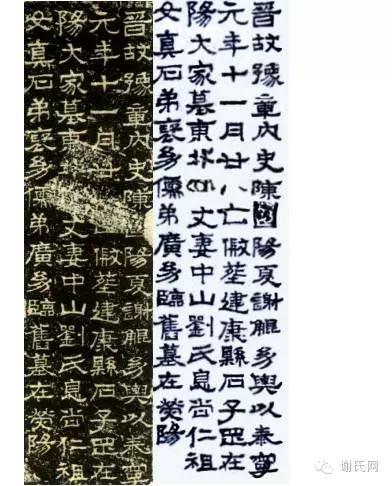 晉故豫章內史陳國陽夏謝鯤幼輿以泰寧
元年十一月廿八亡假塟建康縣石子罡在
陽大家墓東北四丈妻中山劉氏息尚仁祖
女真石弟襃幼儒弟廣幼臨舊墓在熒陽
晉故豫章內史陳陽夏謝鯤幼輿以泰寧
元年十一月廿假塟建康縣石子罡在
陽大家墓東丈妻中山劉氏息尚仁祖
女真石弟襃幼儒弟廣幼臨舊墓在熒陽
谢氏网